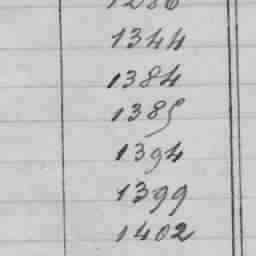 1286
1344
1384
1385
1394
1399
1402